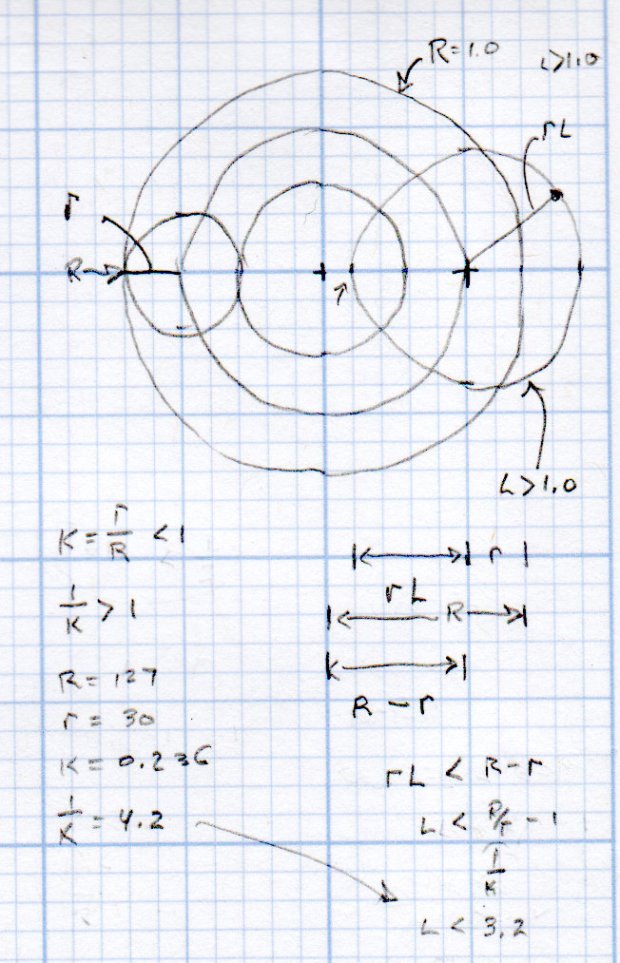 R=1.0
L>1.0
rL
r
R
L>1.0
K = r/R < 1
1/K > 1
R = 127
r = 30
K = 0.236
1/K = 4.2
r
rL
R
R - r
rL < R-r
L < R/r - 1
1/K
L < 3.2